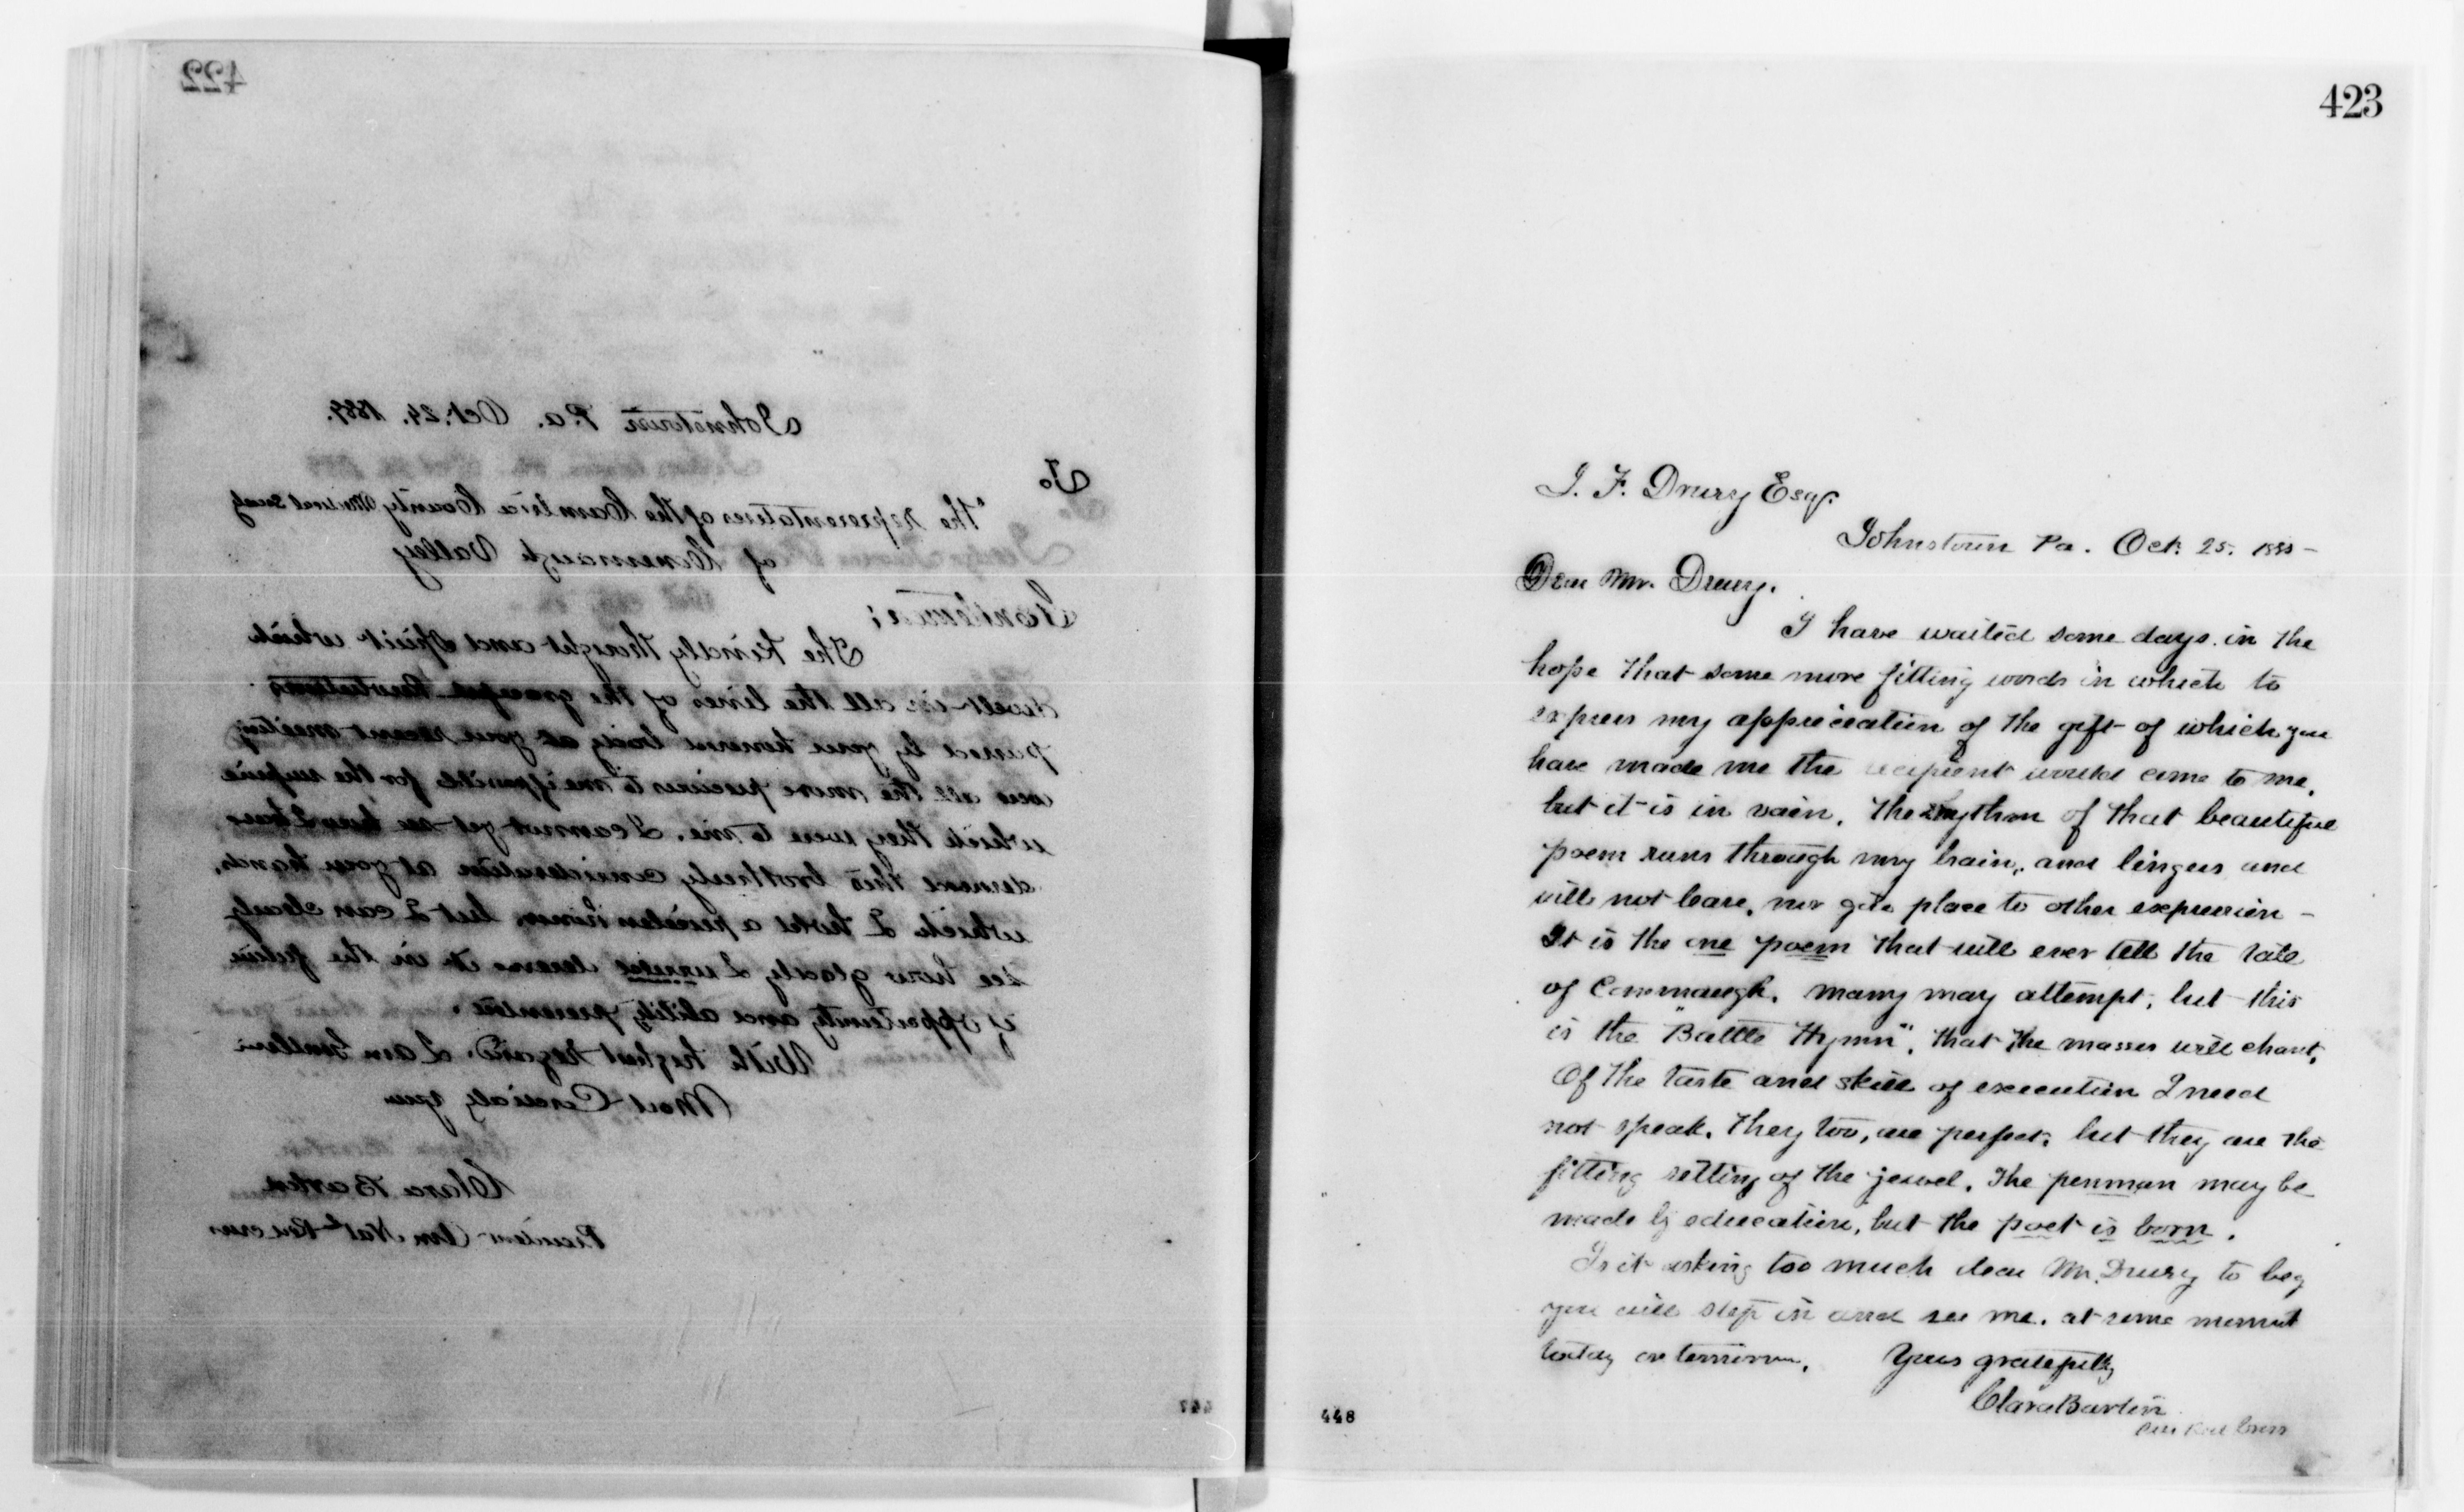 422
Johnstown Pa. Oct. 24. 1889.
To
"The representatives of the Cambria County Medical Society
of Conemaugh Valley
Gentlemen;
The kindly thought and spirit which
dwelt in all the lines of the graceful Resolutions
passed by your honored body at your recent meeting
was all the more precious to me if possible for the surprise
which they were to me. I cannot yet see how I have
deserved this brotherly consideration at your hands,
which I hold a priceless honor, but I can clearly
see how gladly I would deserve it in the future
if opportunity and ability presented.
With highest regard, I am Gentlemen
Most Cordially yours
Clara Barton
President Am Natl Red Cross
447
423
J. F. Drury Esq.
Johnstown Pa. Oct. 25.
Dear Mr. Drury.
I have waited some days in the
hope that some more fitting words in which to
express my appreciation of the gift of which you
have made me the recipient would come to me,
but it is in vain. The rhythm of that beautiful
poem runs through my brain, and lingers and
will not leave, nor give place to other expression –
It is the one poem that will ever tell the tale
of Conemaugh. Many may attempt, but this
is the "Battle Hymn", that the masses will chant.
Of the taste and skill of execution I need
not speak. They too, are perfect, but they are the
fitting setting of the jewel. The penman may be
made by education, but the poet is born.
Is it asking too much dear Mr. Drury to beg
you will step in and see me. at some moment
today or tomorrow. Yours gratefully
Clara Barton
Red Cross
448